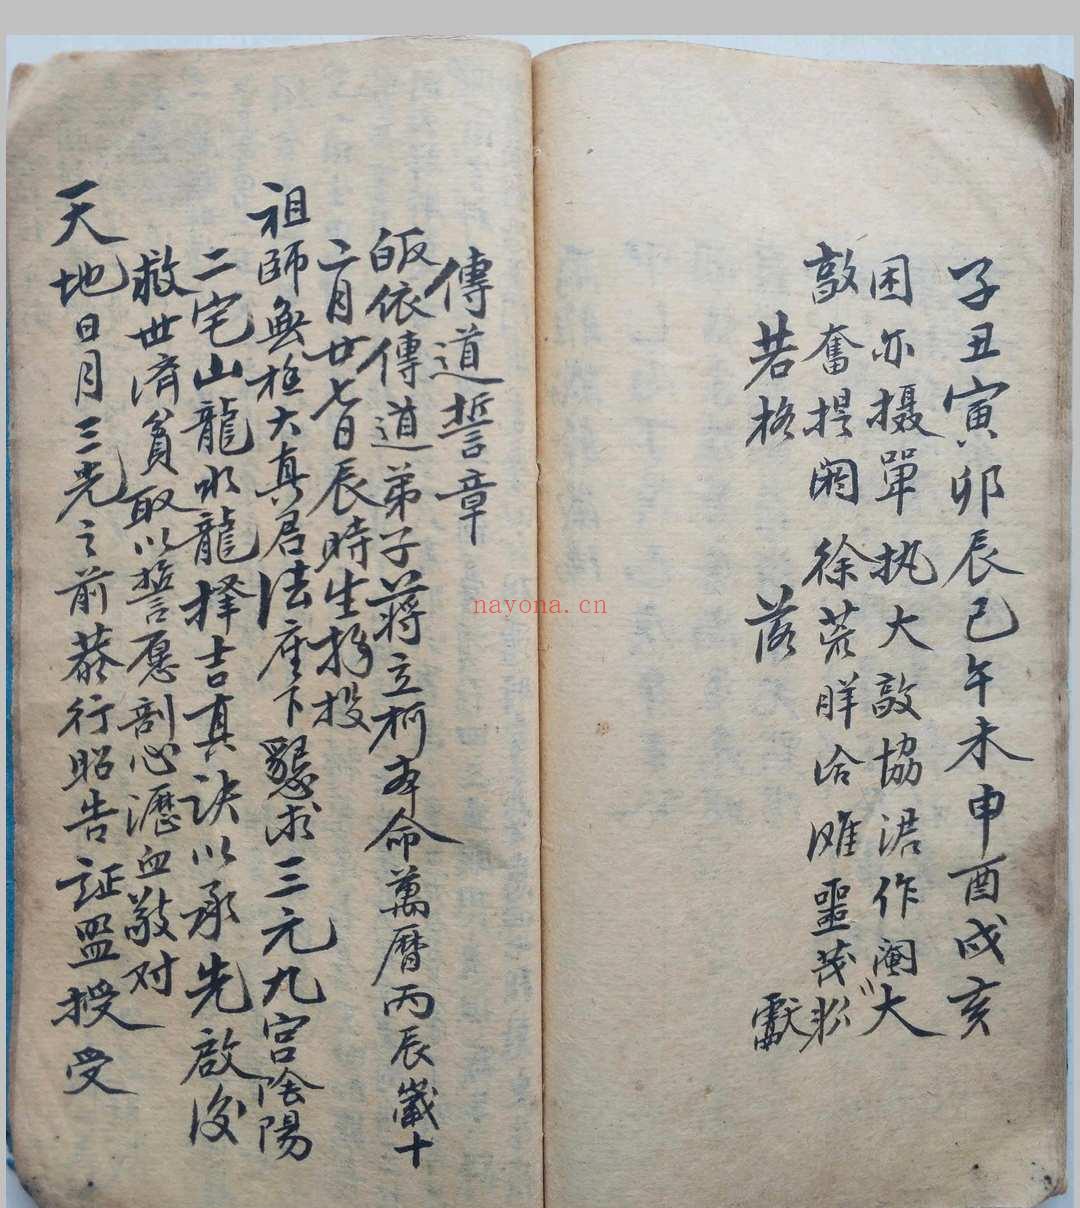 子丑寅卯辰巳午未申酉戌亥
困亦摄單执大敦協涒作阉大
敦奮提阏徐荒牂洽滩噩茂
若格 落 獻
傳道誓章
皈依傳道弟子蒋立柯本命萬曆丙辰歲十
二月廿七日辰時生投
祖師無極大真君法座下懇求三元九宫陰陽
二宅山龍水龍擇吉真訣以承先啟後
救世濟貧取以誓愿剖心瀝血敬对
天地日月三光之前恭行昭告証盟授受
nayona.cn